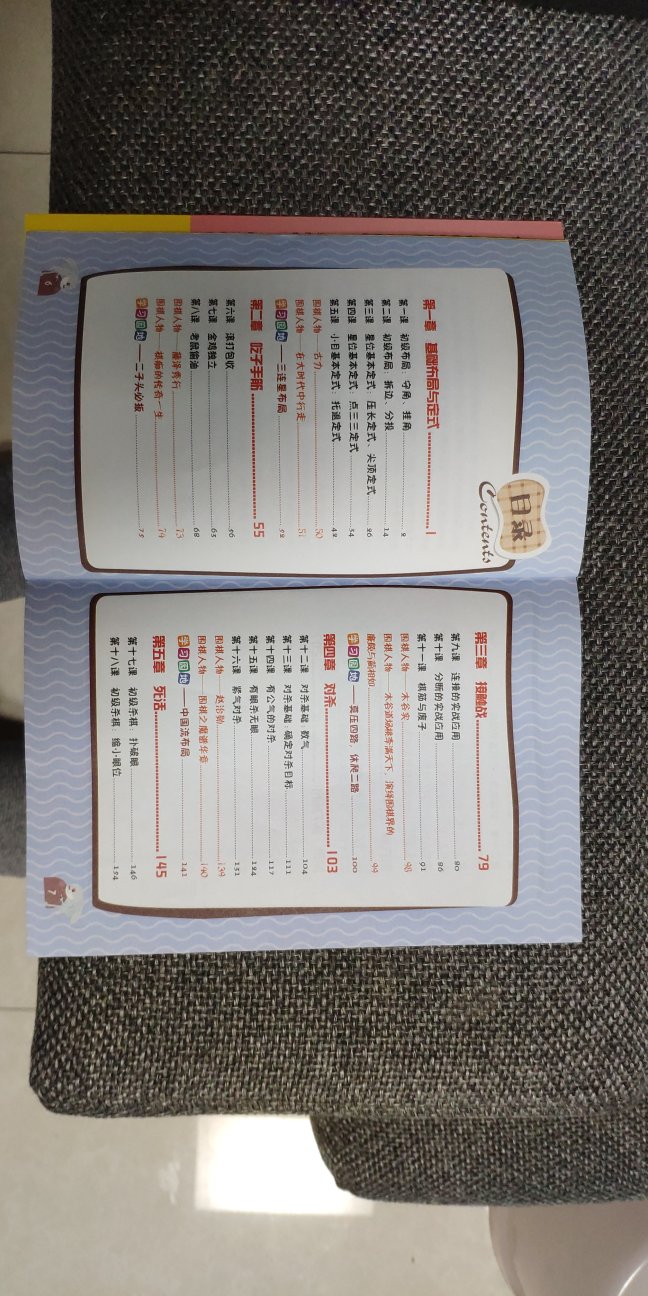 目录
Contents
第一章 基础布局与定式 1
第一课 初级布局：守角、挂角 2
第二课 初级布局：拆边、分投 14
第三课 星位基本定式：压长定式、尖顶定式 26
第四课 星位基本定式：点三三定式 34
第五课 小目基本定式：托退定式 42
围棋人物——古力 50
围棋人物——在大时代中行走 51
学习园地——三连星布局 52
第二章 吃子手筋 55
第六课 滚打包收 56
第七课 金鸡独立 63
第八课 老鼠偷油 68
围棋人物——藤泽秀行 73
围棋人物——棋痴的传奇一生 74
学习园地——二子头必扳 75
6
第三章 接触战 79
第九课 连接的实战应用 80
第十课 分断的实战应用 86
第十一课 棋筋与废子 91
围棋人物——木谷实 98
围棋人物——木谷道场桃李满天下，演绎围棋界的
廉颇与蔺相如 99
学习园地——莫压四路 休爬二路 100
第四章 对杀 103
第十二课 对杀基础：数气 104
第十三课 对杀基础：确定对杀目标 111
第十四课 有公气的对杀 117
第十五课 有眼杀无眼 124
第十六课 紧气对杀 131
围棋人物——赵治勋 139
围棋人物——围棋之魔遒华章 140
学习园地——中国流布局 141
第五章 死活 145
第十七课 初级杀棋：扑破眼 146
第十八课 初级杀棋：缩小眼位 154
7